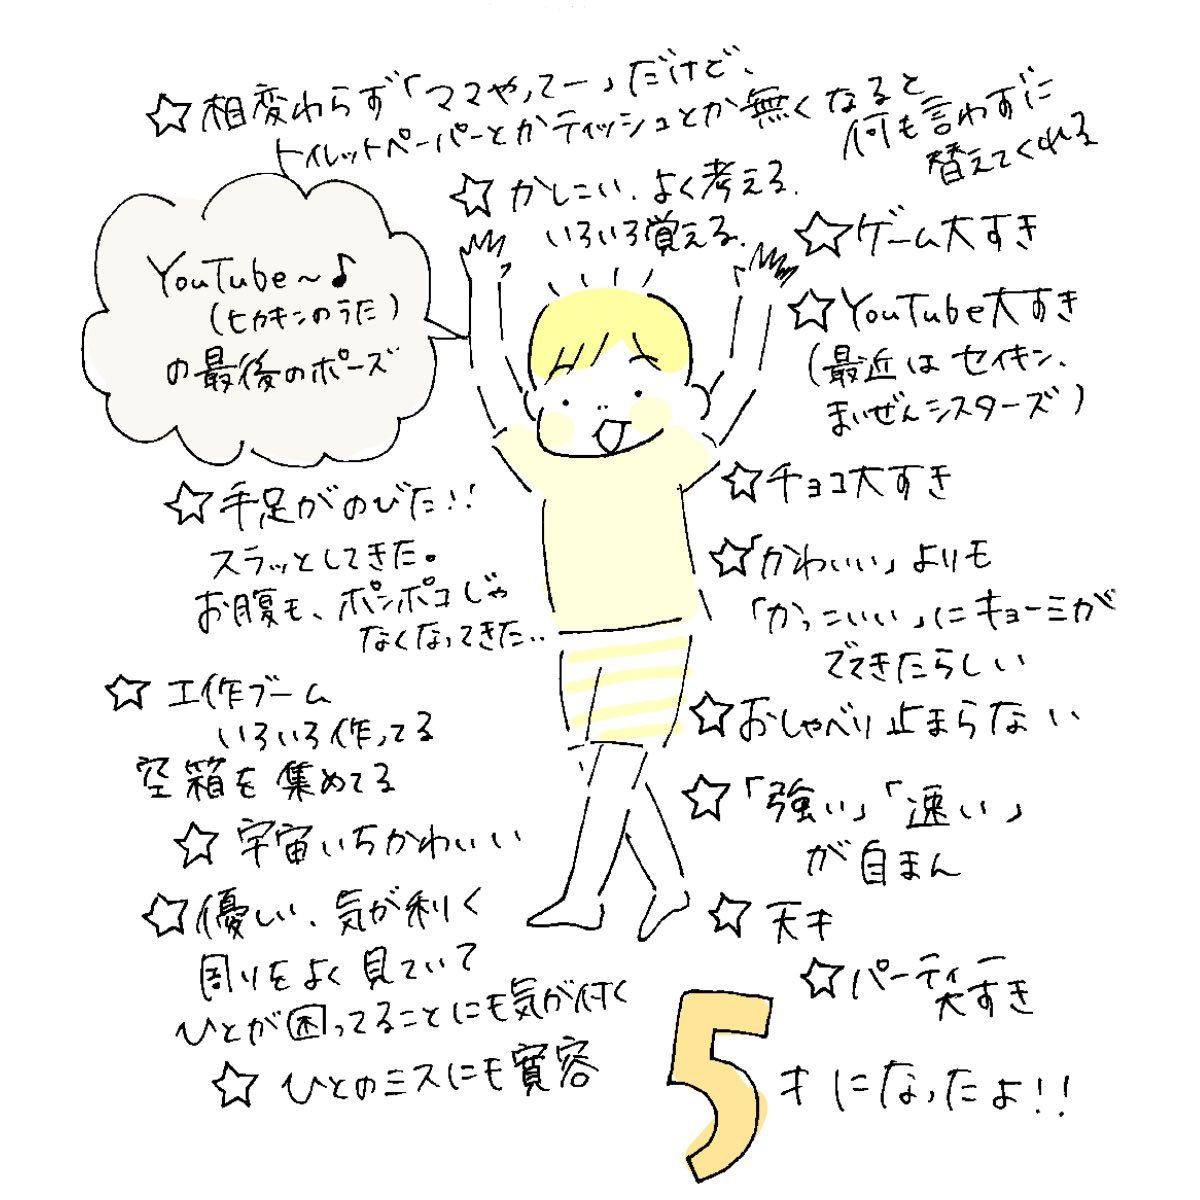 ☆相変わらず「ママやってー」だけど、
トイレットペーパーとかティッシュとか無くなると
何も言わずに
替えてくれる
☆かしこい、よく考える、
いろいろ覚える、
YouTube～♪
(ヒカキンのうた)
の最後のポーズ
☆ゲーム大すき
☆YouTube大すき
(最近はセイキン、
まいぜんシスターズ)
☆チョコ大すき
☆「かわいい」よりも
「かっこいい」にキョーミが
でてきたらしい
☆おしゃべり止まらない
☆「強い」「速い」
が自まん
☆天才
☆パーティー
大すき
☆手足がのびた!!
スラッとしてきた。
お腹も、ポンポコじゃ
なくなってきた..
☆工作ブーム
いろいろ作ってる
空箱を集めてる
☆宇宙いちかわいい
☆優しい、気が利く
周りをよく見ていて
ひとが困ってることにも気が付く
☆ひとのミスにも寛容
5才になったよ!!